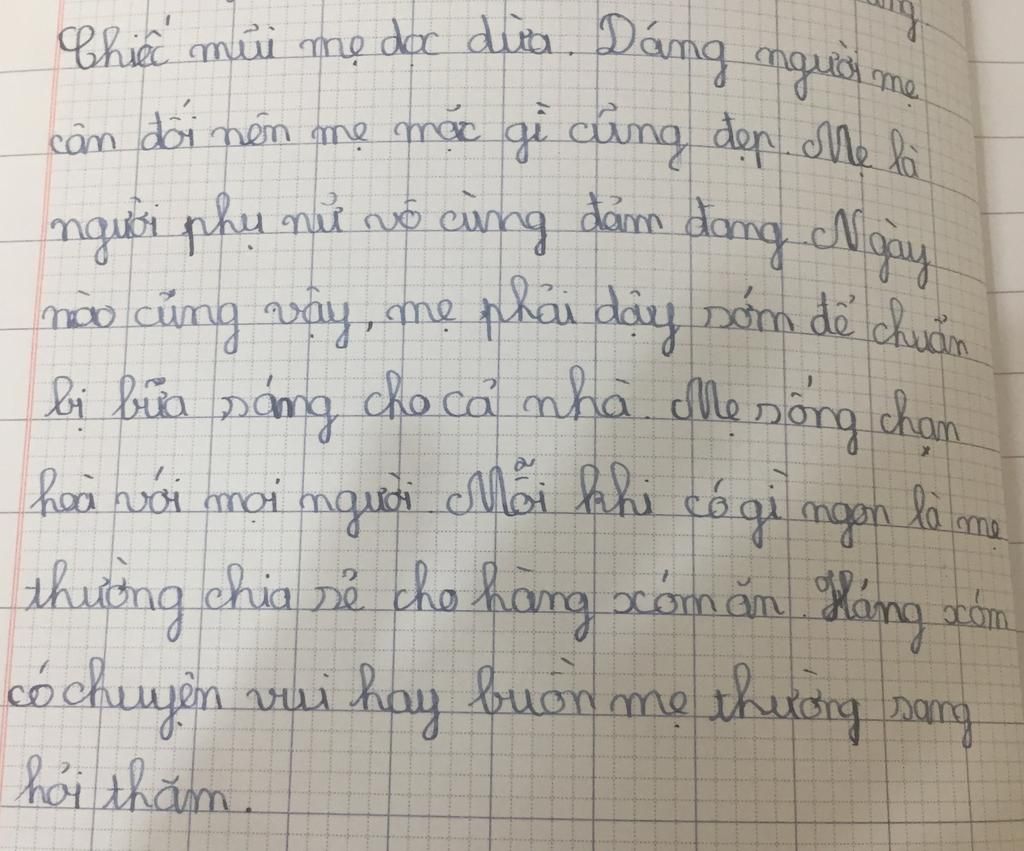 Chiếc mũi mẹ dọc dừa. Dáng người mẹ
cân đối nên mẹ mặc gì cũng đẹp. Mẹ là
người phụ nữ vô cùng đảm đang. Ngày
nào cũng vậy, mẹ phải dậy sớm để chuẩn
bị bữa sáng cho cả nhà. Mẹ sống chan
hoà với mọi người. Mỗi khi có gì ngon là mẹ
thường chia sẻ cho hàng xóm ăn. Hàng xóm
có chuyện vui hay buồn mẹ thường sang
hỏi thăm.